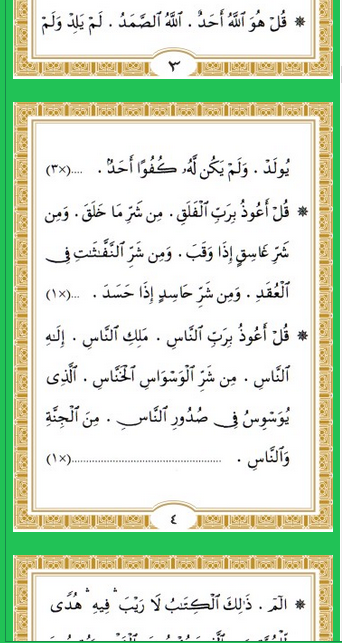 * قُلْ هُوَ اللَّهُ أَحَدٌ . اللَّهُ الصَّمَدُ . لَمْ يَلِدْ وَلَمْ
٣
يُولَدْ . وَلَمْ يَكُن لَّهُۥ كُفُوًا أَحَدٌ . ....(×٣)
* قُلْ أَعُوذُ بِرَبِّ ٱلْفَلَقِ . مِن شَرِّ مَا خَلَقَ . وَمِن
شَرِّ غَاسِقٍ إِذَا وَقَبَ . وَمِن شَرِّ ٱلنَّفَّٰثَٰتِ فِى
ٱلْعُقَدِ . وَمِن شَرِّ حَاسِدٍ إِذَا حَسَدَ . ...(×١)
* قُلْ أَعُوذُ بِرَبِّ ٱلنَّاسِ . مَلِكِ ٱلنَّاسِ . إِلَٰهِ
ٱلنَّاسِ . مِن شَرِّ ٱلْوَسْوَاسِ ٱلْخَنَّاسِ . ٱلَّذِى
يُوَسْوِسُ فِى صُدُورِ ٱلنَّاسِ . مِنَ ٱلْجِنَّةِ
وَٱلنَّاسِ . ........................................(×١)
٤
* الٓمٓ . ذَٰلِكَ ٱلْكِتَٰبُ لَا رَيْبَ ۛ فِيهِ ۛ هُدًى